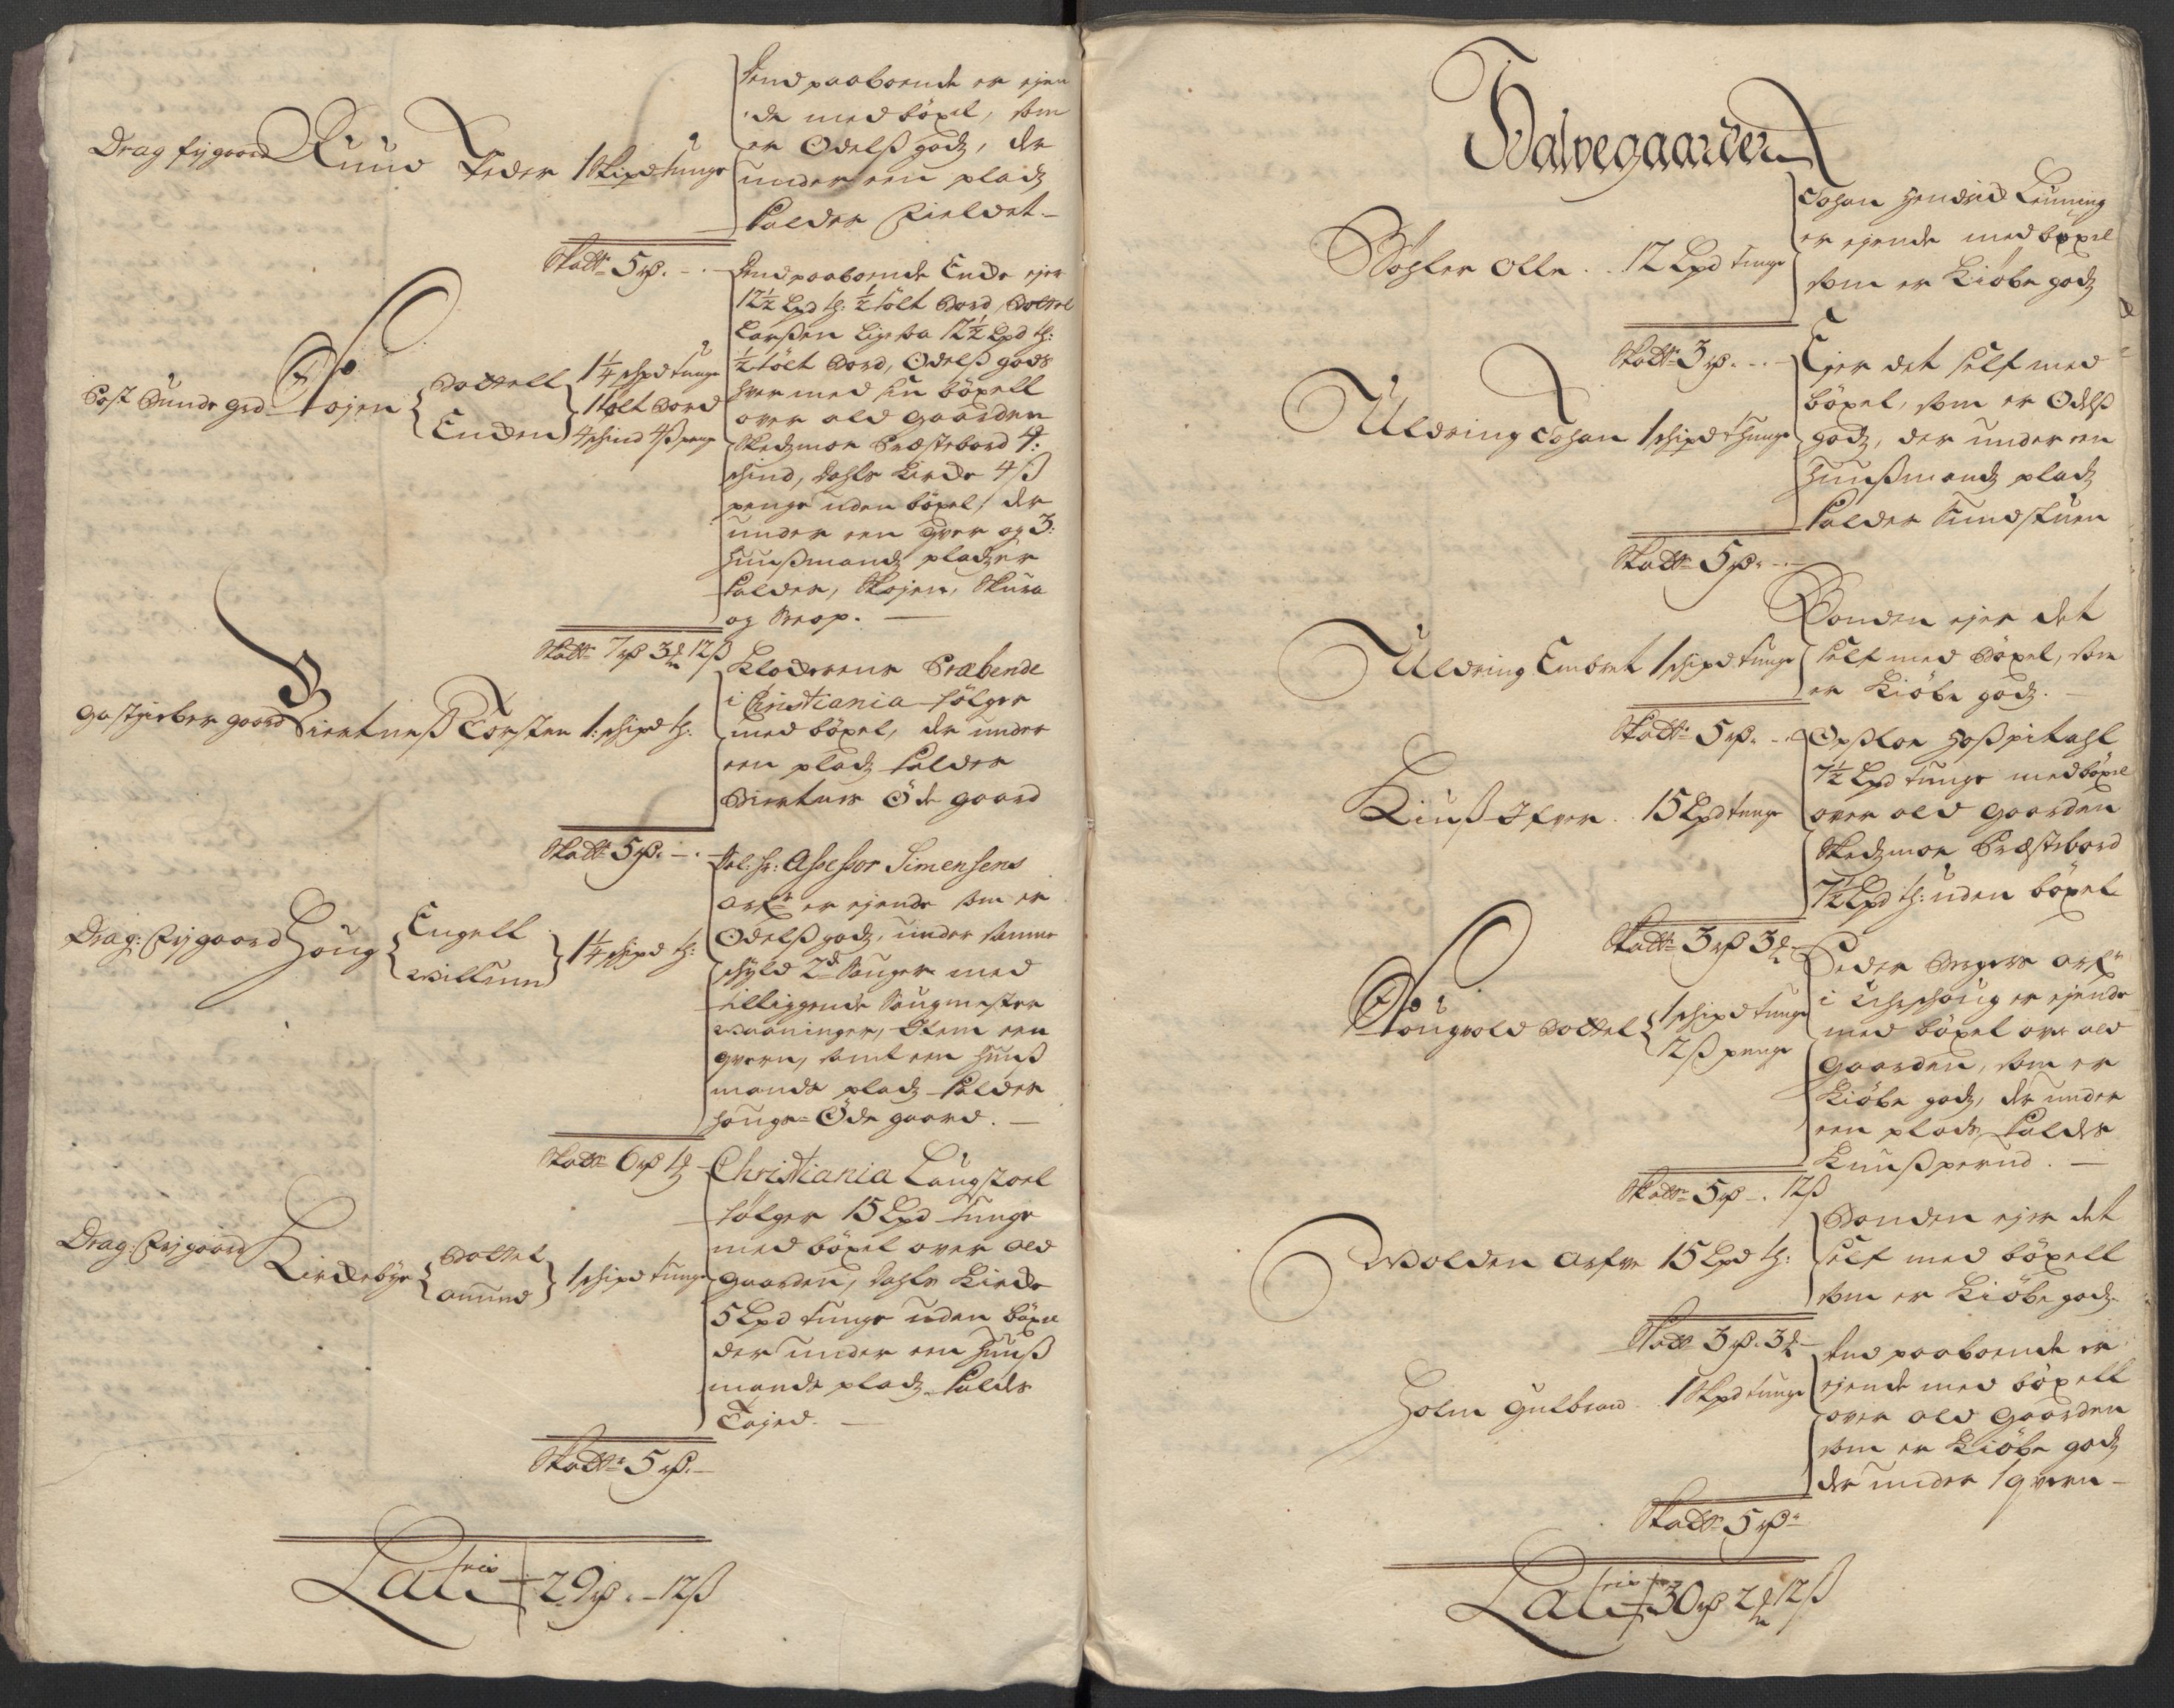 Drag frjgaard Ruud Peder 1 Skipd tunge
Dend paaboende er ejen
de med böxel, som
er Odelß godz, der
under een pladz
kalder Fieldet.
Skatt 5 rß. -.-
Post Bunde grd Stojen { Bottell Enden } 1¼ schpd tunge 1 tolt Bord 4 schind 4 ß penge
Dend paaboende Ende ejer
12½ Lpd tg: ½ tölt Bord, Bottel
Larßen Lige saa 12½ Lpd tg:
½ tölt Bord, Odelß gods
hver med sin böxell
over ald gaarden
Skedzmoe Præstebord 4:
schind, Dahls Kirche 4 ß
penge uden böxel, der
under een qvern og 3:
huußmandz pladzer
kalder, Skojen, Skura
og Brop. —
Skatt 7 rß 3 12 ß
gastgieber gaard Biertneß Torsten 1: schipd tg.
Klocherens Præbende
i Christiania følger
med böxel, der under
een pladz kalder
Biertnes Öde gaard
Skatt 5 rß. -.-
Drag: Frjgaard Houg { Engell Willum } 1¼ schipd tg:
Sal: hr: Assessor Simensens
arf: er ejende som er
Odelß godz, under samme
schyld 2de Sauger med
tilliggende Saugmester
Waaninger, Item een
qvern, samt een huuß
mands pladz kalder
Houge= Öde gaard. —
Skatt 6 rß 1
Drag: Frjgaard Kirchebye { Bottel Amund } 1 schipd tunge
Christiania Laugstoel
følger 15 Lpd tunge
med böxel over ald
gaarden, Dahls Kirche
5 Lpd tunge uden böxel
der under een huuß
mands pladz kalder
Tajed. —
Skatt 5 rß.—
Latus 29 rß. - 12 ß
Halvegaarder
Böhler Olle .. 12 Lpd tunge
Johan Hendrich Leuning
er ejende med böxel
som er Kiöbe godz
Skatt 3 rß. -.-
Uldring Johan 1 schipd thunge
Ejer det self med
böxel, som er Odelß
godz, der under een
huußmandz pladz
kalder Sundstuen
Skatt 5 rß. -.-
Uldring Embret 1 schipd tunge
Bonden ejer det
self med Böxel, som
er Kiöbe godz. —
Skatt 5 rß. -.
Kiuß Ifver .. 15 Lpd tunge
Opßloe Hoßpitahl
7½ Lpd tunge med böxel
over ald gaarden
Skedzmoe Præstebord
7½ Lpd tg: uden böxel
Skatt 3 rß 3
Stougvold Bottel { 1 schipd tunge 12 ß penge
Peder Bergers arf:
i er ejende
med böxel over ald
gaarden, som er
Kiöbe godz, der under
een plads kalder
Knußperud. —
Skatt 5 rß -. 12 ß
Wolden Arfve 15 Lpd tg:
Bonden ejer det
self med böxell
som er Kiöbe godz
Skatt 3 rß. 3
Holm Gulbrand . 1 Skpd tunge
Dend paaboende er
ejende med böxell
over ald gaarden
som er Kiöbe godz
der under 1 qvern —
Skatt 5 rß
Latus 30 rß 2 12 ß